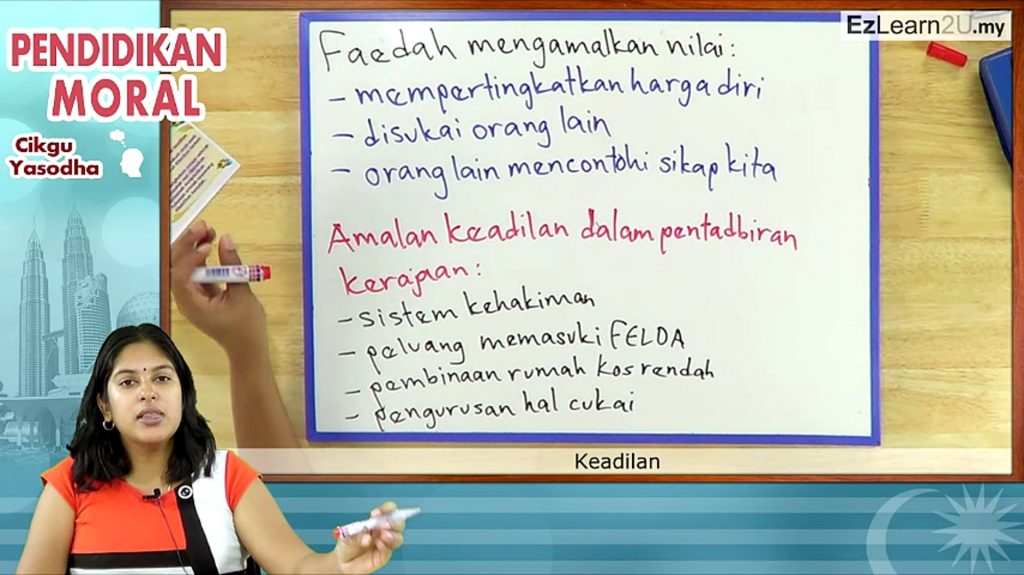 PENDIDIKAN
MORAL
Cikgu
Yasodha
EzLearn2U.my
Faedah mengamalkan nilai:
- mempertingkatkan harga diri
- disukai orang lain
- orang lain mencontohi sikap kita
Amalan keadilan dalam pentadbiran
kerajaan:
- sistem kehakiman
- peluang memasuki FELDA
- pembinaan rumah kos rendah
- pengurusan hal cukai
Keadilan